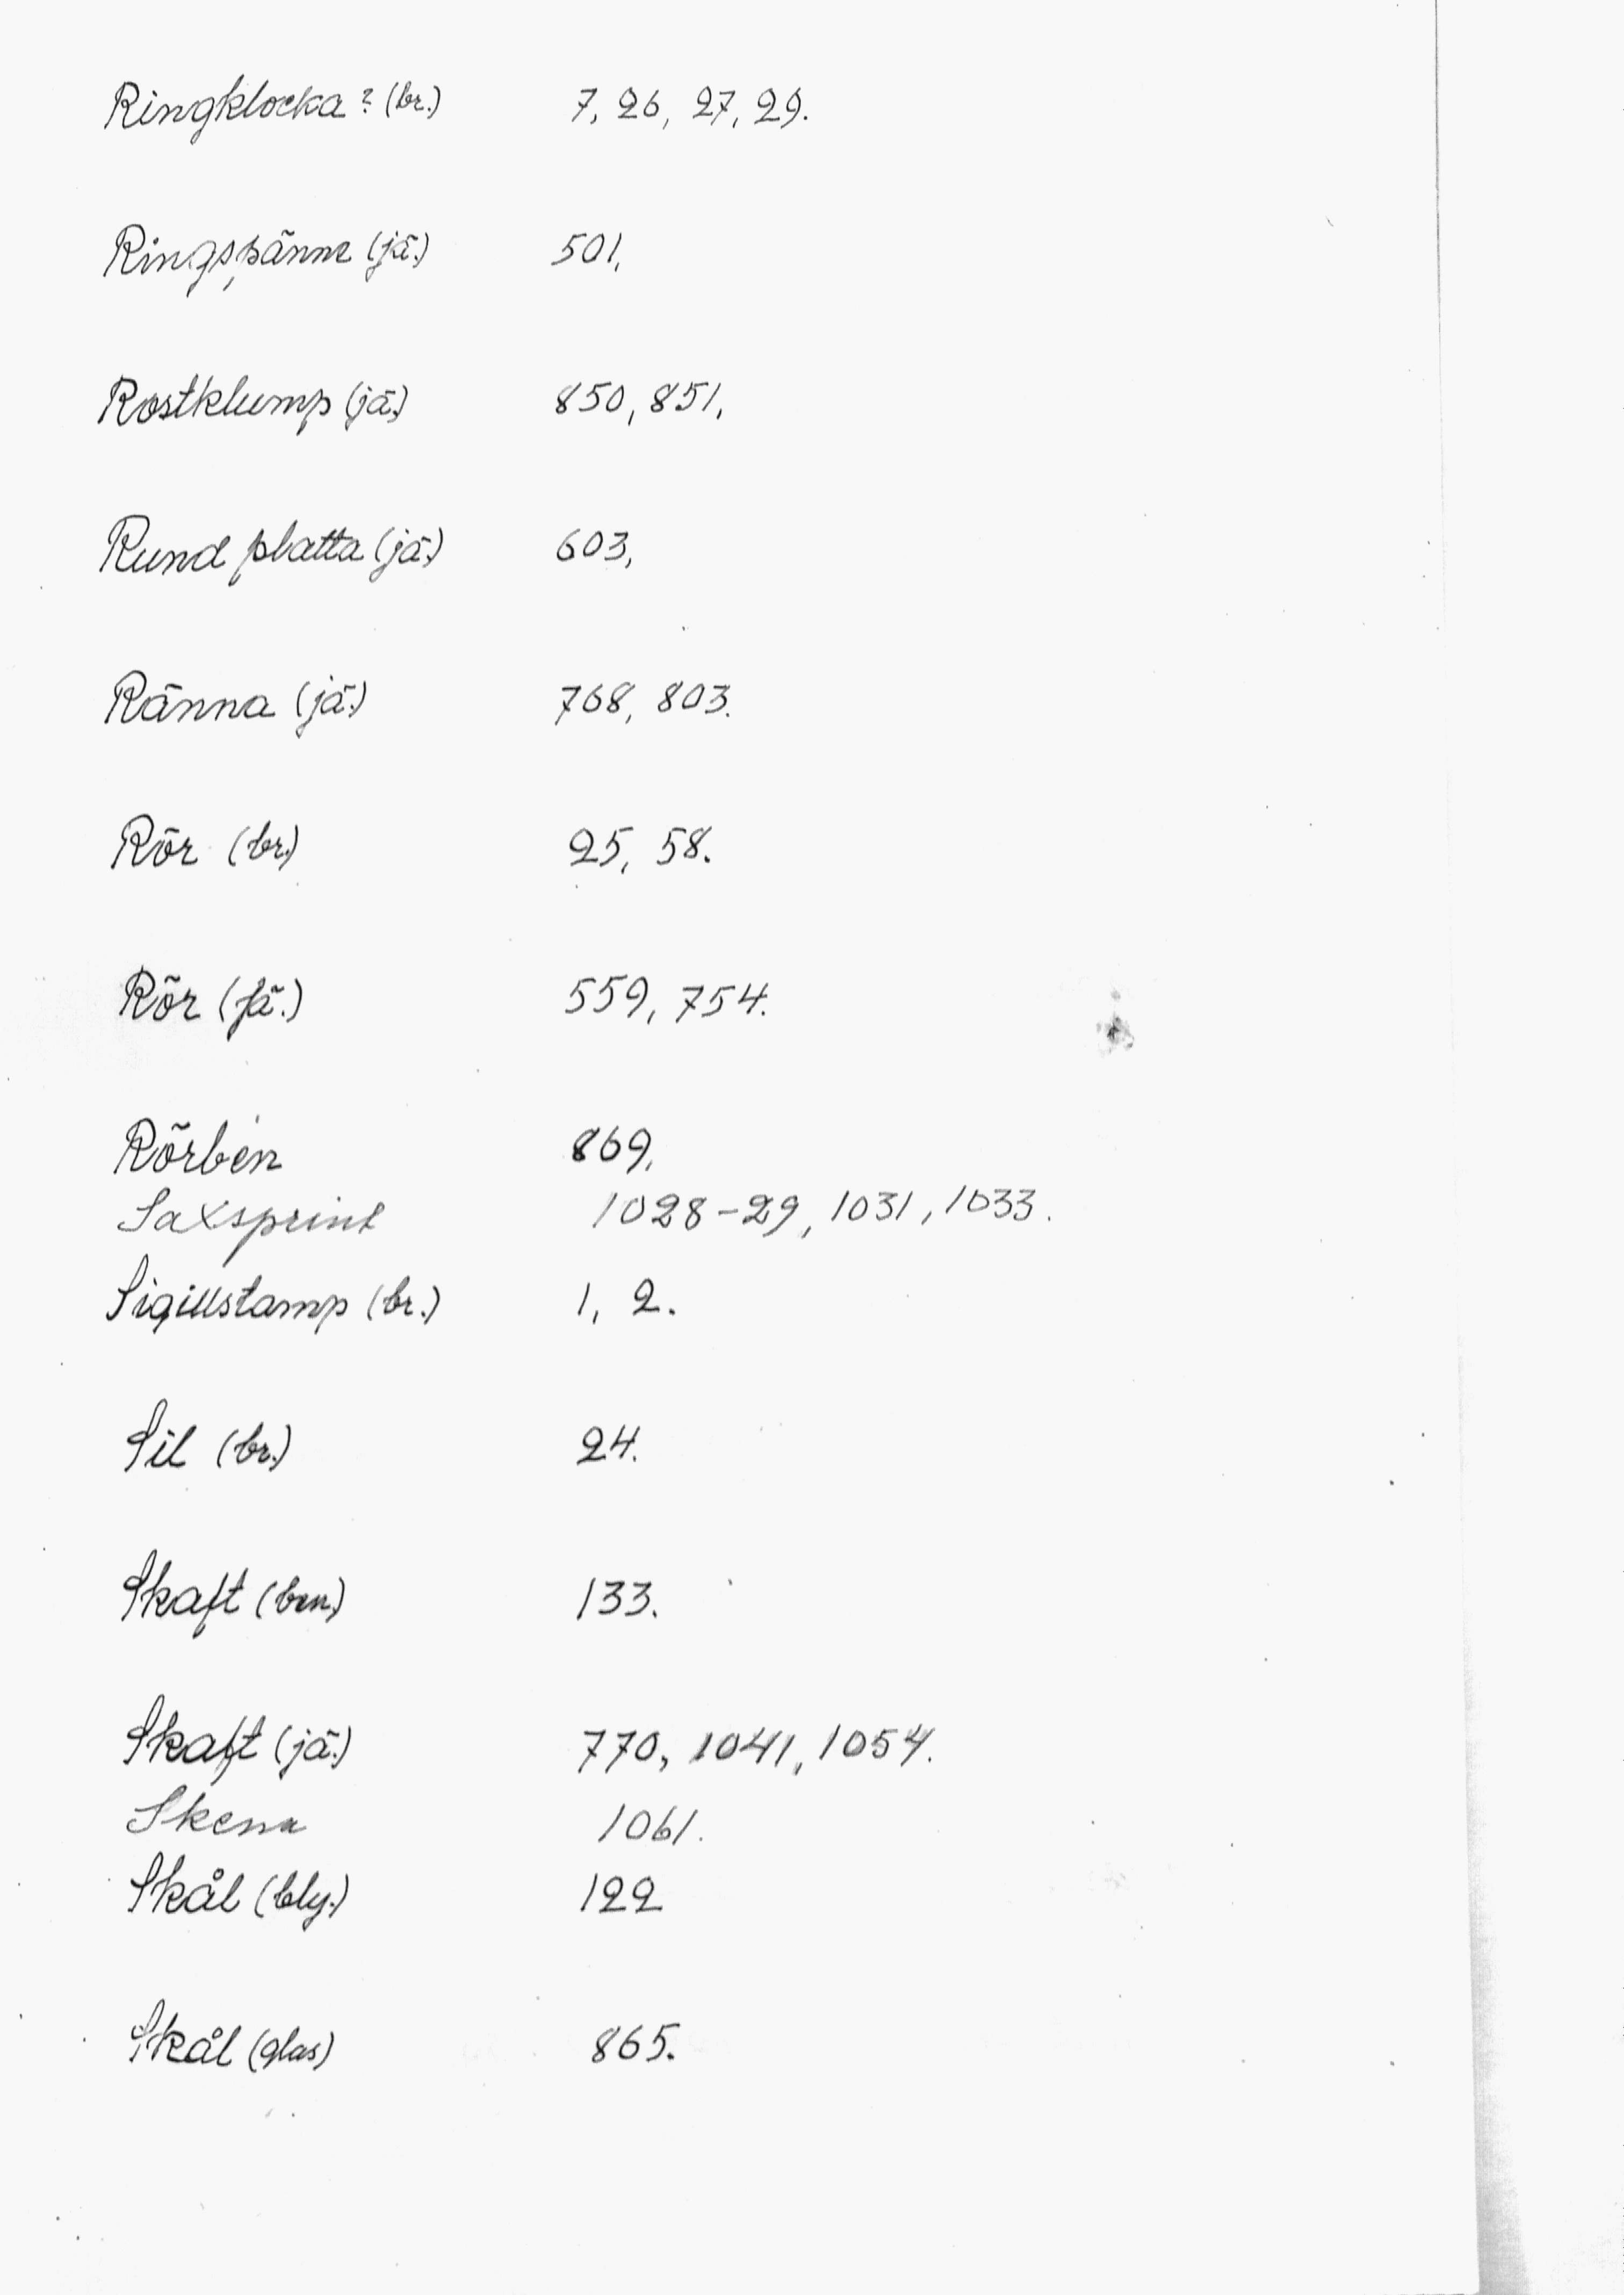 Ringklocka? (br.) 7, 26, 27, 29.
Ringspänne (jä.) 501,
Rostklump (jä.) 850, 851,
Rund platta (jä.) 603,
Ränna (jä.) 768, 803.
Rör (br.) 25, 58.
Rör (jä.) 559, 754.
Rörben 869,
Saxsprint 1028-29, 1031, 1033.
Sigillstamp (br.) 1, 2.
Sil (br.) 24.
Skaft (ben) 133.
Skaft (jä.) 770, 1041, 1054.
Skena 1061.
Skål (bly.) 122
Skål (glas) 865.